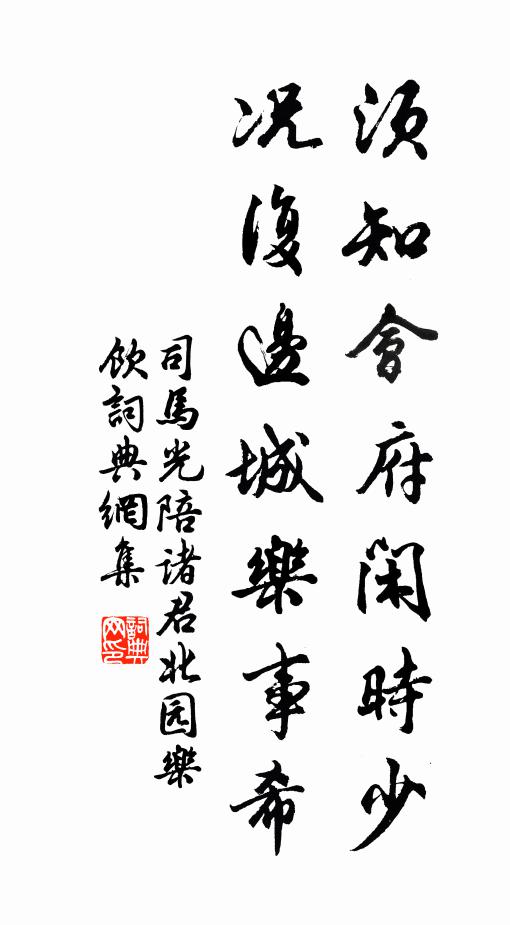 須知會府閑時少
况復邊城樂事希
司馬光陪諸君北园樂
飲詞典網集
詞典网印